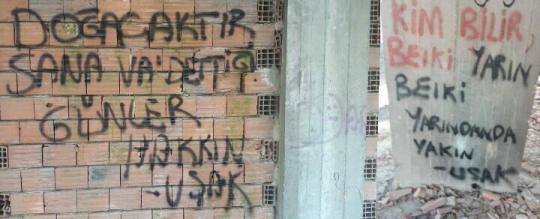 DOĞACAKTIR
SANA VA'DETTİĞİ
GÜNLER
HAKKIN
-UŞAK
KİM BİLİR,
BEIKI YARIN
BEIKI
YARINDANDA
YAKIN
-UŞAK